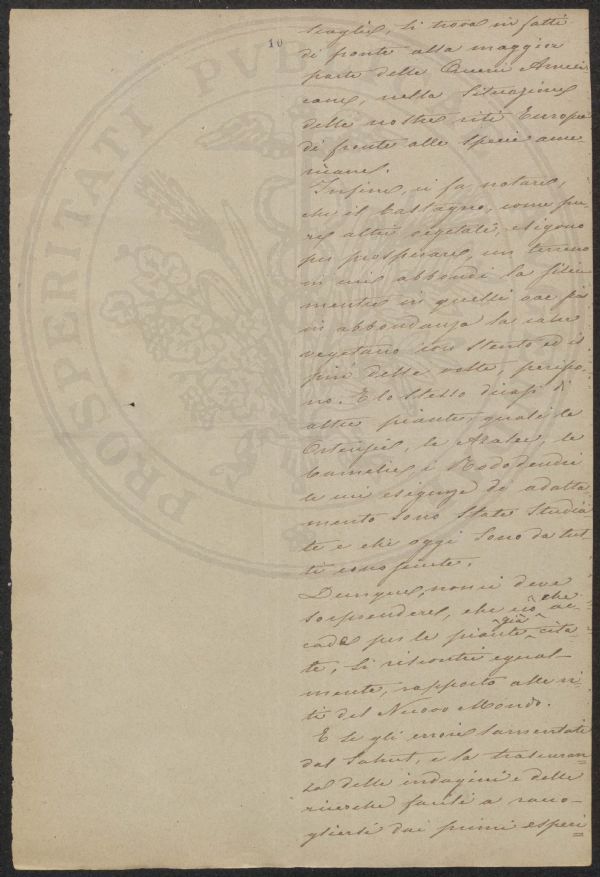 10
scaglie, si trova in fatti
di fronte alla maggior
parte delle Querci Ameri
cane, nella situazione
delle nostre viti Europee
di fronte alle specie ame
ricane.
Infine, ci fa notare,
che il Castagno, come pu
re altri vegetali, esigono
per prosperare, un terreno
in cui abbondi la silice
mentre in quelli ove sia
in abbondanza la calce
vegetano con stento ed il
più delle volte, perisco
no. E lo stesso dicasi di
altre piante, quali le
Ortensie, le Azalee, le
Camelie, i Rododendri
le cui esigenze di adatta
mento sono state studia
te e che oggi sono da tut
ti conosciute.
Dunque, non ci deve
sorprendere, che ciò che ac
cade per le piante già cita
te, si riscontri egual-
mente, rapporto alle vi
ti del Nuovo Mondo.
E se gli errori lamentati
dal Sahut, e la trascuran
za delle indagini e delle
ricerche facili a racco-
gliersi dai primi esperi
PROSPERITATI PUBLICAE